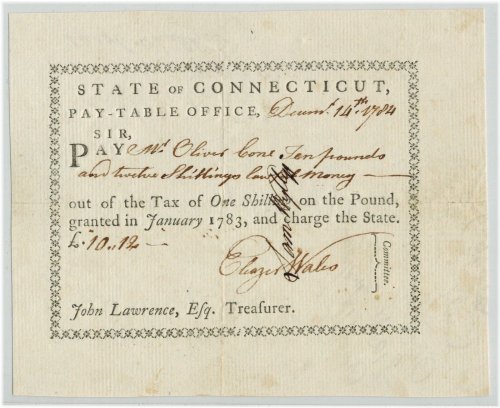 STATE OF CONNECTICUT,
PAY-TABLE OFFICE, Decemr. 14th. 1784
SIR,
PAY Mr. Oliver Cone Ten pounds
and twelve Shillings lawful money
out of the Tax of One Shilling on the Pound,
granted in January 1783, and charge the State.
£. 10.. 12
Eleazer Wales
Committee.
John Lawrence, Esq. Treasurer.